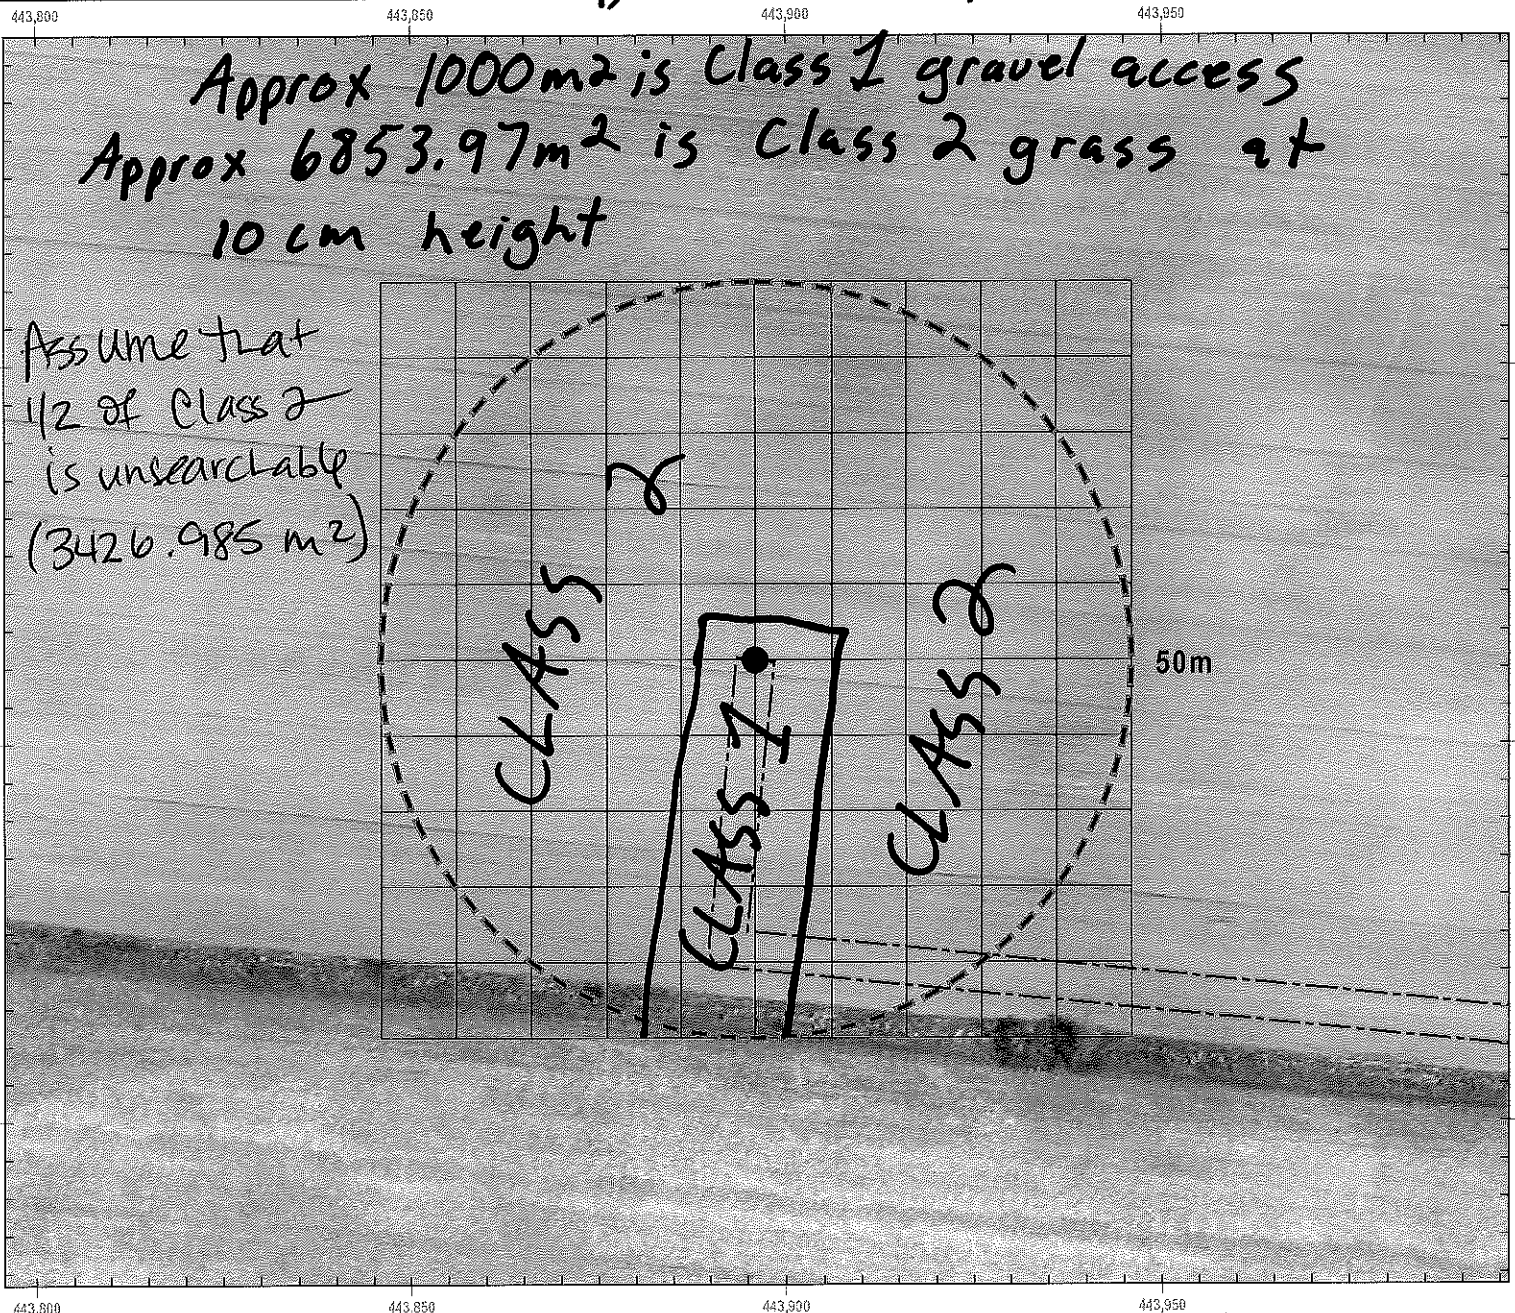 443,800 443,850 443,900 443,950
Approx 1000m2 is Class 1 gravel access
Approx 6853.97m2 is Class 2 grass at
10 cm height
Assume that
1/2 of Class 2
is unsearchable
(3426.985 m2)
CLASS 2
CLASS 2
CLASS 1
50m
443,800 443,850 443,900 443,950